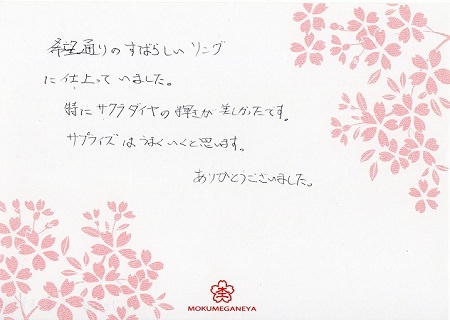 希望通りのすばらしいリング
に仕上っていました。
特にサクラダイヤの輝きが美しかったです。
サプライズはうまくいくと思います。
ありがとうございました。
MOKUMEGANEYA